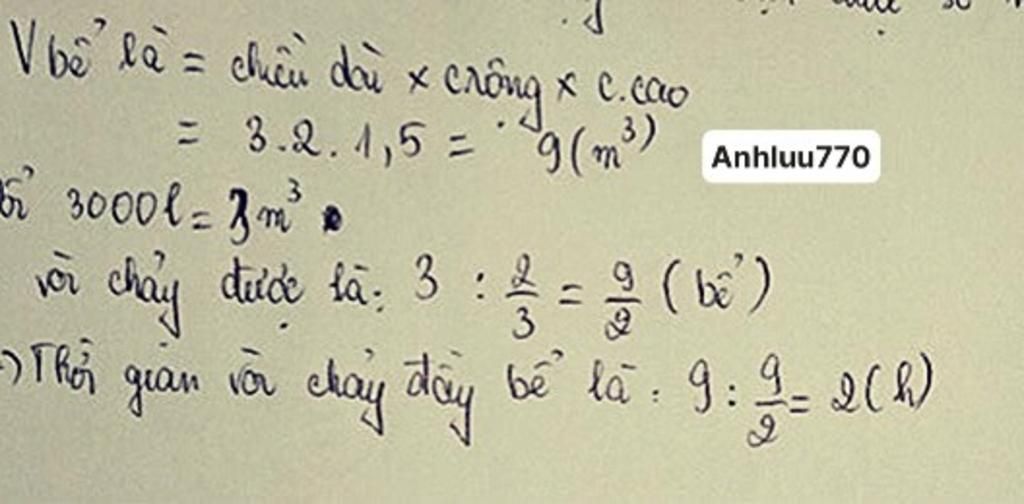 V bể là = chiều dài × c rộng × c.cao
= 3.2.1,5 = 9 (m³)
Anhluu770
3000l = 3m³
vòi chảy được là: 3 : 2/3 = 9/2 (bể)
Thời gian vòi chảy đầy bể là: 9 : 9/2 = 2(h)